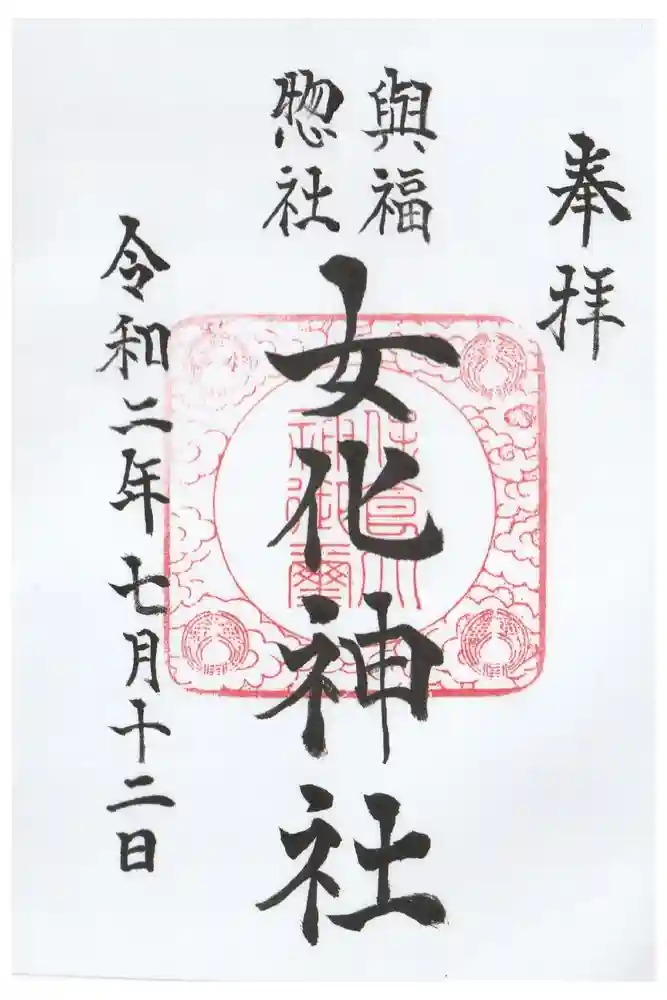 奉拝
與福
惣社
女化神社
令和二年七月十二日